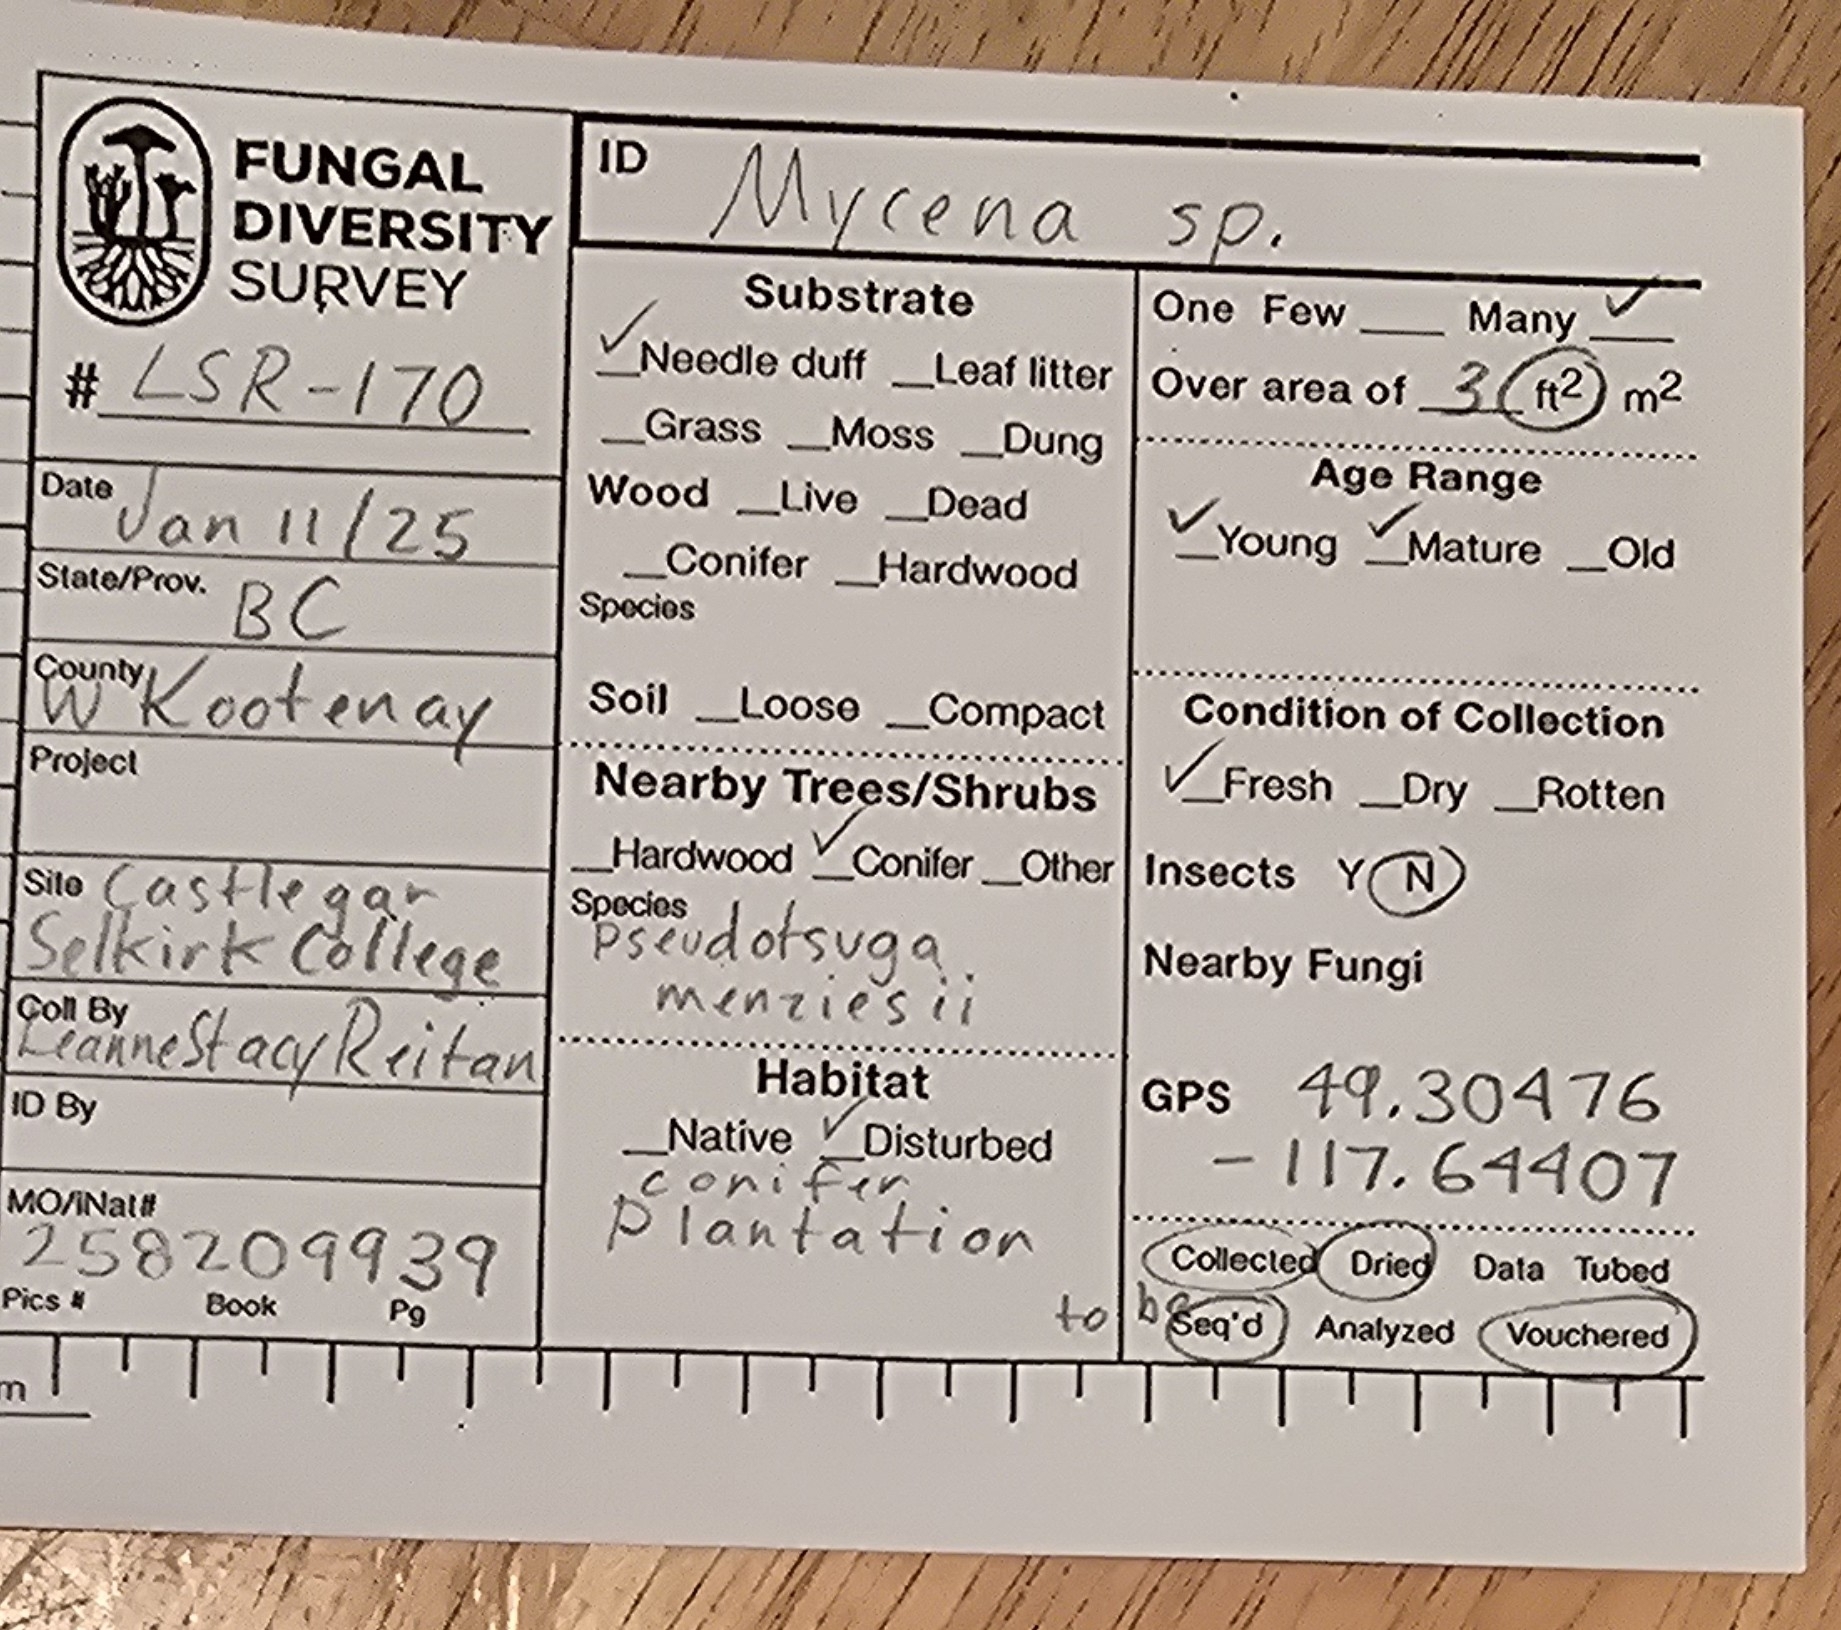 FUNGAL
DIVERSITY
SURVEY
# LSR-170
Date Jan 11/25
State/Prov. BC
County W Kootenay
Project
Site Castlegar
Selkirk College
Coll By
LeanneStacyReitan
ID By
MO/iNat#
258209939
Pics # Book Pg
ID Mycena sp.
Substrate
✓ Needle duff __Leaf litter
__Grass __Moss __Dung
Wood __Live __Dead
__Conifer __Hardwood
Species
Soil __Loose __Compact
Nearby Trees/Shrubs
__Hardwood ✓ Conifer __Other
Species
pseudotsuga
menziesii
Habitat
__Native ✓ Disturbed
conifer
plantation
One Few ___ Many ✓
Over area of 3 ft2 m2
Age Range
✓ Young ✓ Mature __Old
Condition of Collection
✓ Fresh __Dry __Rotten
Insects Y N
Nearby Fungi
GPS 49.30476
-117.64407
Collected Dried Data Tubed
to be Seq'd Analyzed Vouchered
m